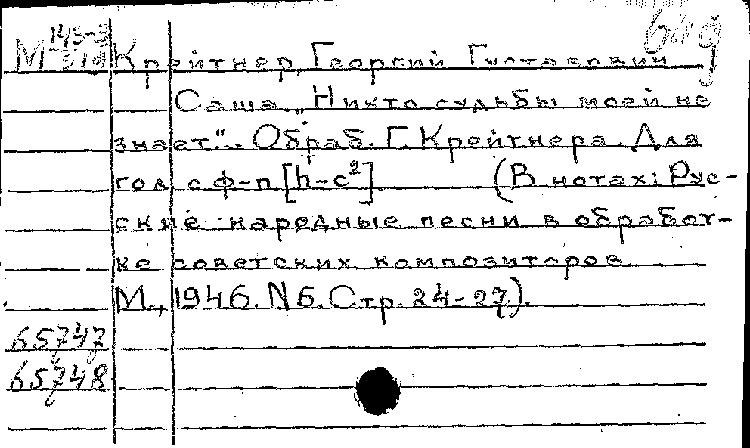 М 145-3 Крейтнер, Георгий Густавович
Саша „Никто судьбы моей не
знает". Обраб. Г. Крейтнера. Для
гол. с ф-п [h-c²] (В нотах: Рус-
ские народные песни в обработ-
ке советских композиторов.
М., 1946. N 6. Стр. 24-27).
65747
65748